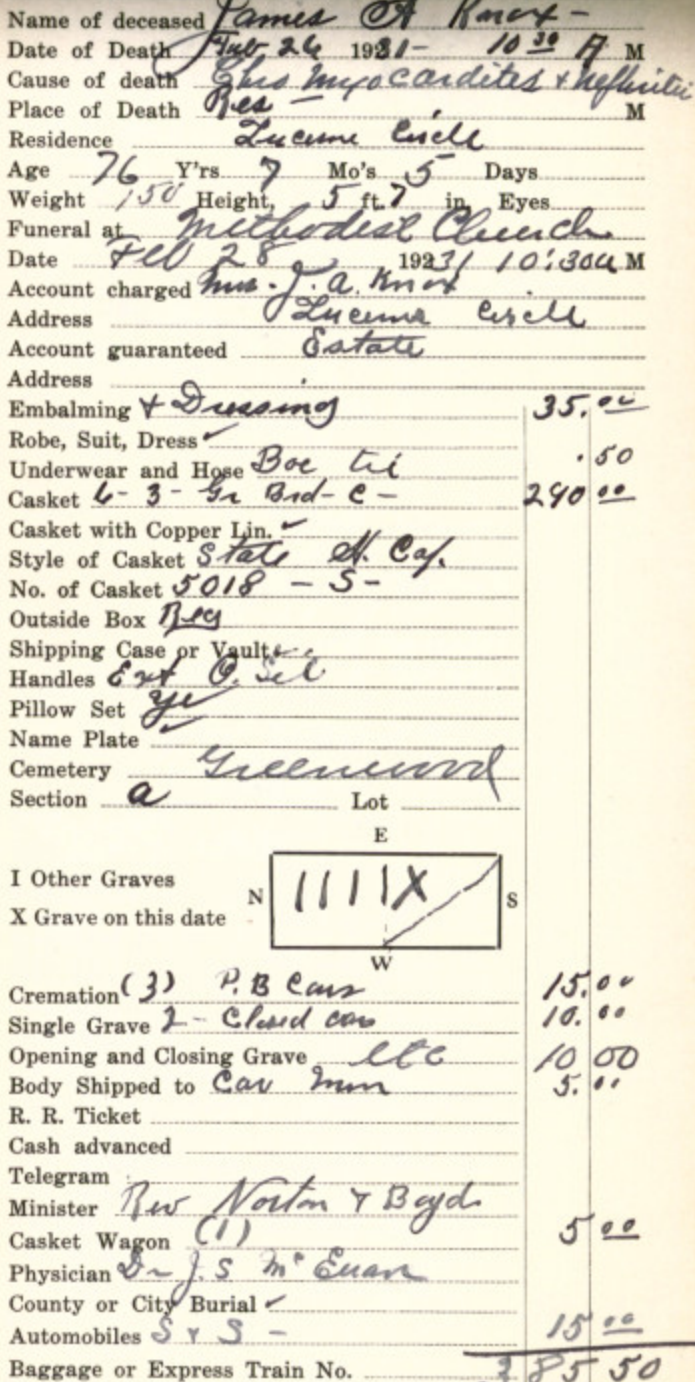 Name of deceased James A Knox -
Date of Death Feb 26 1931 - 10 30 A M
Cause of death Chro Myocardites + Nephritis
Place of Death Res - M
Residence Lucerne Circle
Age 76 Y'rs 7 Mo's 5 Days
Weight 150 Height, 5 ft. 7 in. Eyes
Funeral at Methodist Church
Date Feb 28 1931 10:30 a M
Account charged Mrs. J. A. Knox
Address Lucerne Circle
Account guaranteed Estate
Address
Embalming + Dressing 35.00
Robe, Suit, Dress ✓
Underwear and Hose Boe tie .50
Casket 6-3- Gr Brd- C - 290 00
Casket with Copper Lin. ✓
Style of Casket State H. Cap.
No. of Casket 5018 - S -
Outside Box Reg
Shipping Case or Vault
Handles Ext O. Sil
Pillow Set Ye
Name Plate ✓
Cemetery Greenwood
Section a Lot
E
I Other Graves
N I I I I X S
X Grave on this date
W
Cremation (3) P.B Cars 15.00
Single Grave 2 - Closed cars 10.00
Opening and Closing Grave etc 10 00
Body Shipped to Car Mnn 5.00
R. R. Ticket
Cash advanced
Telegram
Minister Rev Norton + Boyd
Casket Wagon (1) 5 00
Physician Dr J. S McEuan
County or City Burial ✓
Automobiles S + S - 15 00
Baggage or Express Train No. 85 50